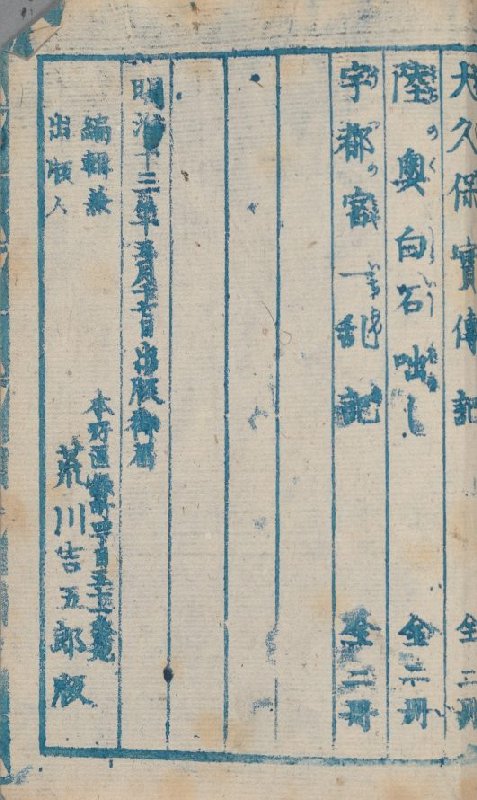 大久保實傳記 全二冊
陸奥白石咄し 全二冊
宇都宮一乱記 全二冊
明治十三年五月十七日出版御届
編輯兼
出版人
本所區 四丁目五十 番地
荒川吉五郎版